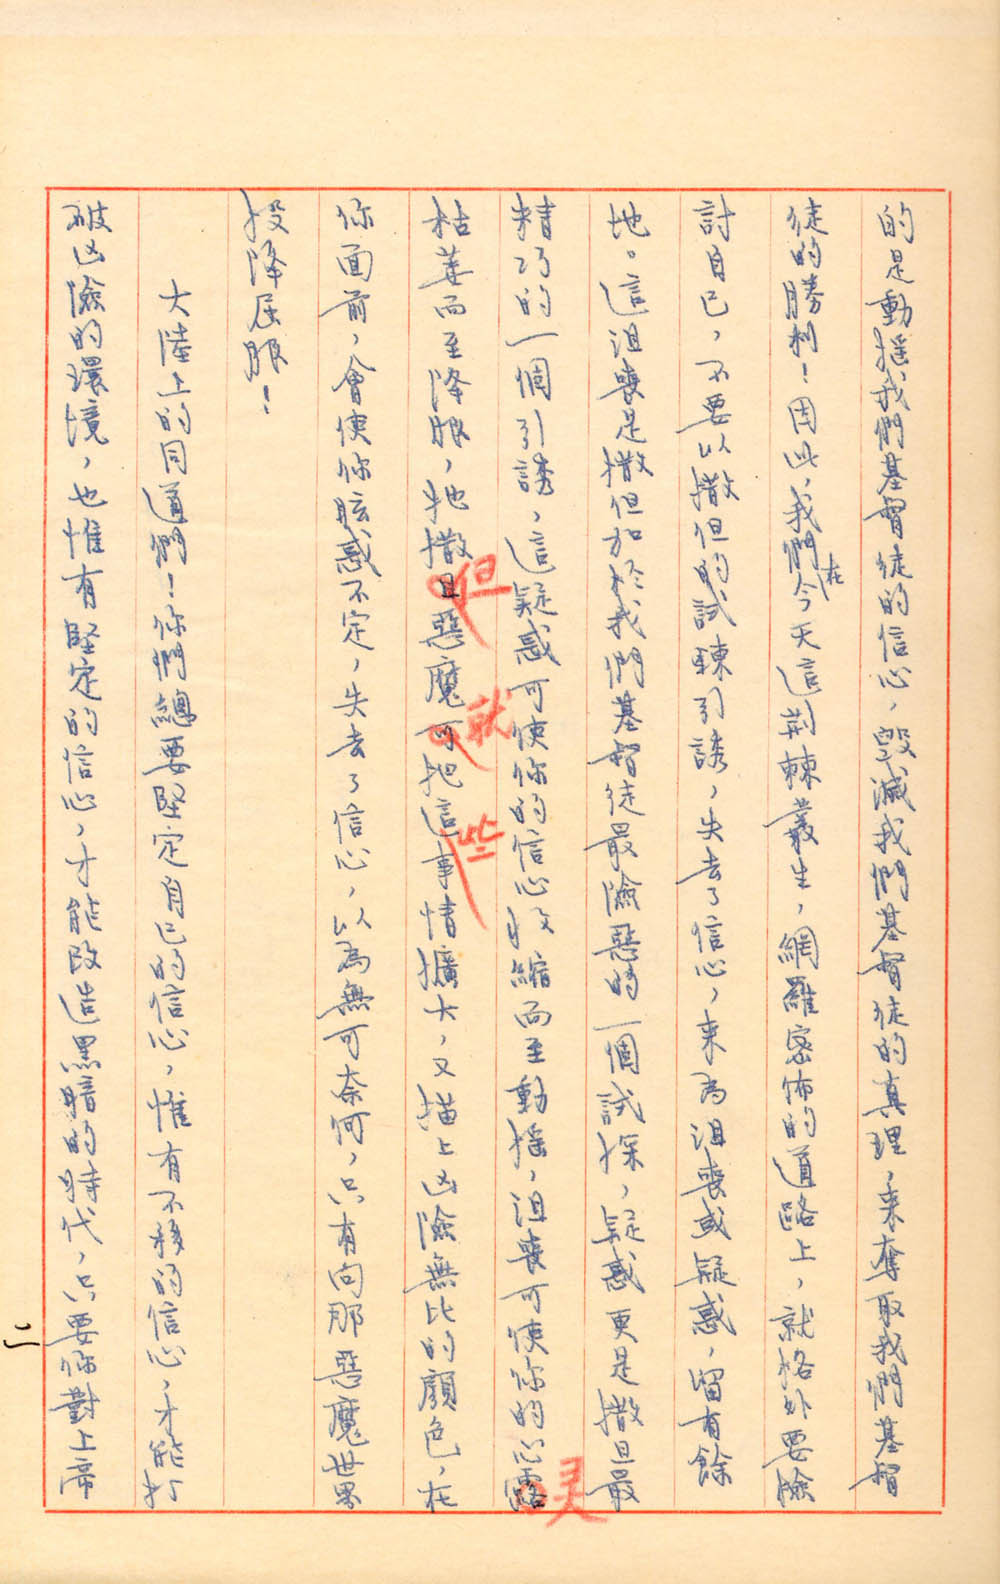 的是動搖我們基督徒的信心，毀滅我們基督徒的真理，来奪取我們基督
徒的勝利！因此，我們在今天這荆棘叢生，網羅密佈的道路上，就格外要檢
討自己，不要以撒但的試鍊引誘，失去了信心，来為沮喪或疑惑，留有餘
地。這沮喪是撒但加於我們基督徒最險惡的一個試探，疑惑更是撒旦最
精巧的一個引誘，這疑惑可使你的信心收縮而至動搖，沮喪可使你的心靈
枯萎而至降服，牠撒旦惡魔可把這事情擴大，又描上凶險無比的顏色，在
但
就
些
灵
你面前，會使你眩惑不定，失去了信心，以為無可奈何，只有向那惡魔世界
投降屈服！
大陸上的同道們！你們總要堅定自己的信心，惟有不移的信心，才能打
破凶險的環境，也惟有堅定的信心，才能改造黑暗的時代，只要你對上帝
二